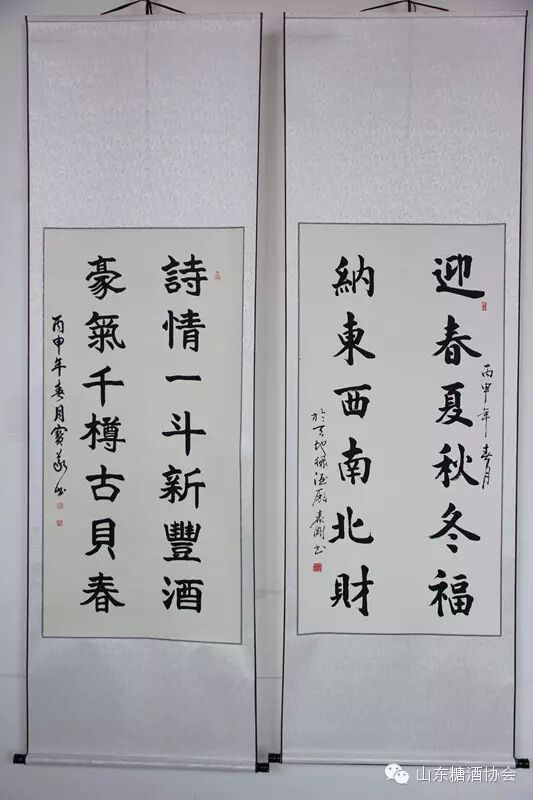 迎春夏秋冬福
丙申年春月
納東西南北財
於天地緣酒廠
書
詩情一斗新豐酒
豪氣千樽古貝春
丙申年春月寶義書
山东糖酒协会